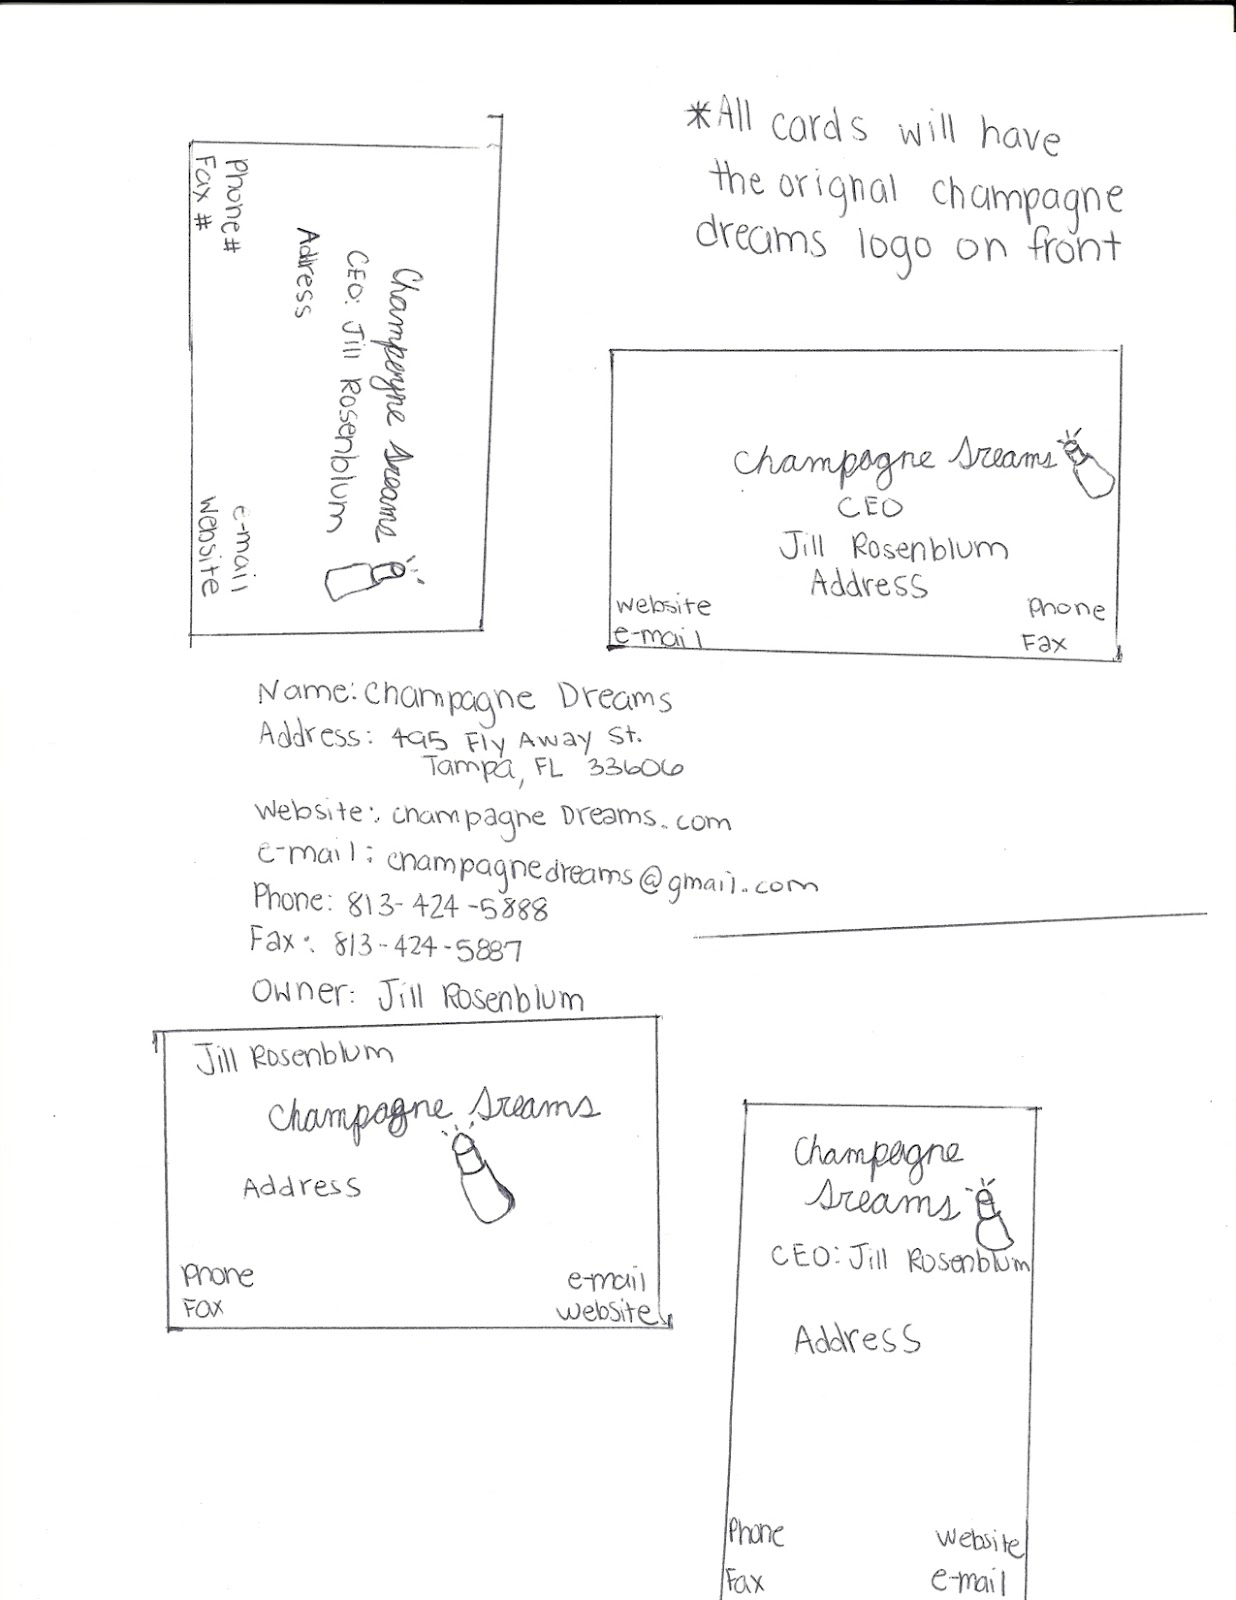 *All cards will have
the orignal champagne
dreams logo on front
Champagne Dreams
CEO: Jill Rosenblum
Address
Phone #
Fax #
e-mail
website
Champagne Dreams
CEO
Jill Rosenblum
Address
website
e-mail
Phone
Fax
Name: Champagne Dreams
Address: 495 Fly Away St.
Tampa, FL 33606
Website: champagne Dreams.com
e-mail: champagnedreams@gmail.com
Phone: 813-424-5888
Fax: 813-424-5887
Owner: Jill Rosenblum
Jill Rosenblum
Champagne Dreams
Address
Phone
Fax
e-mail
website
Champagne
Dreams
CEO: Jill Rosenblum
Address
Phone
Fax
Website
e-mail